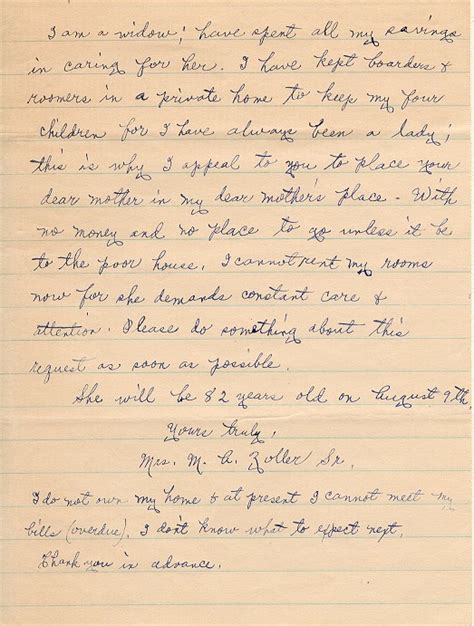 I am a widow; have spent all my savings
in caring for her. I have kept boarders &
roomers in a private home to keep my four
children for I have always been a lady;
this is why I appeal to you to place your
dear mother in my dear mother's place - With
no money and no place to go unless it be
to the poor house. I cannot rent my rooms
now for she demands constant care &
attention. Please do something about this
request as soon as possible.
She will be 82 years old on August 9th.
Yours truly,
Mrs. M. A. Zoller Sr.
I do not own my home & at present I cannot meet my
bills (overdue). I don't know what to expect next.
Thank you in advance.